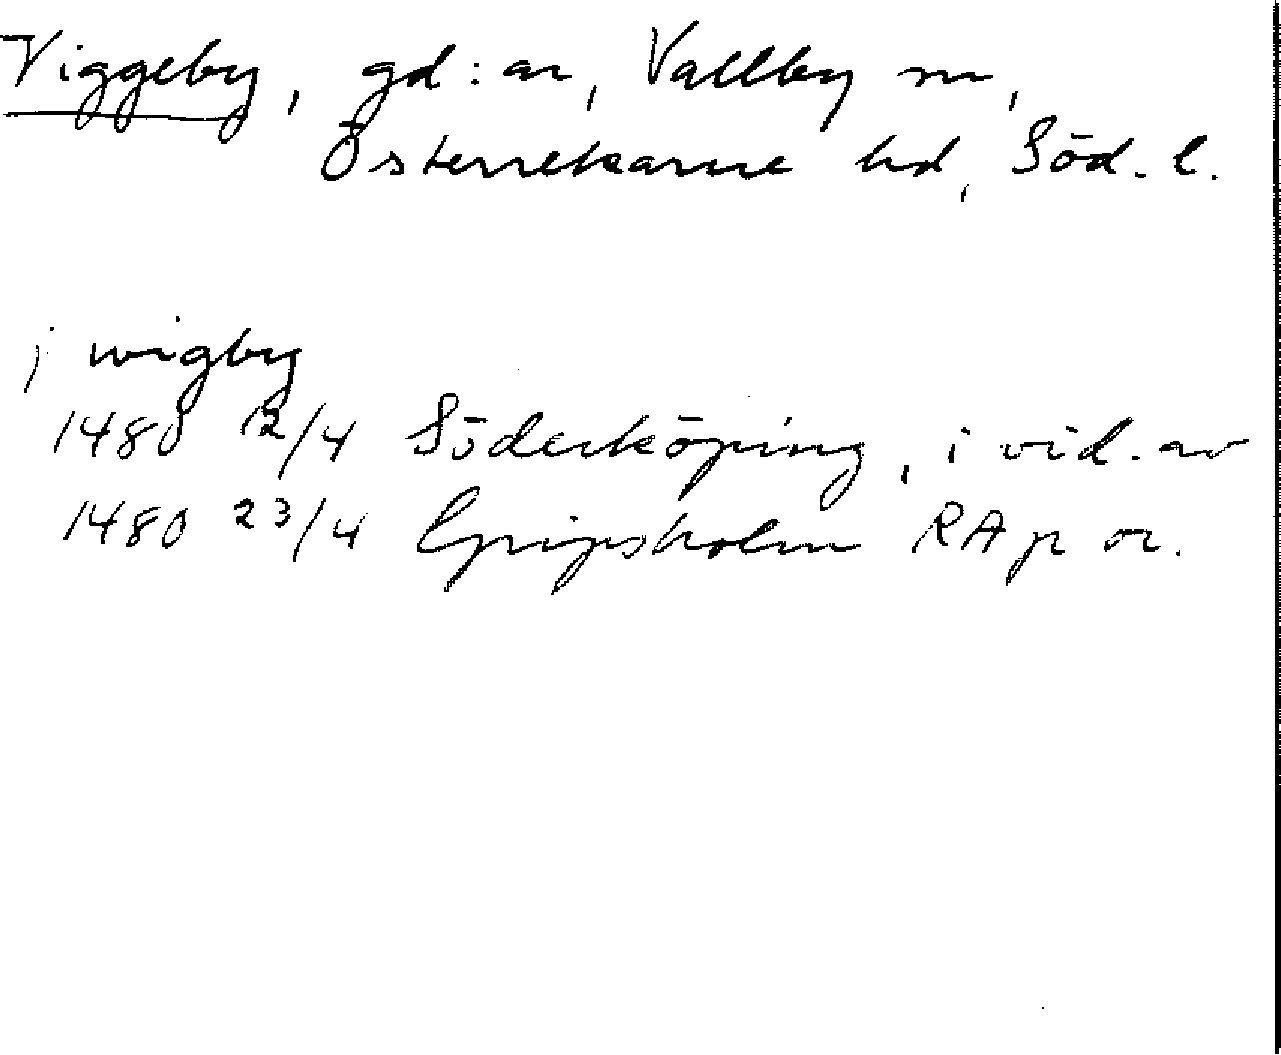 Viggeby, gd:ar, Vallby sn,
Österrekarne hd, Söd. l.
j wigby
1480 12/4 Söderköping, i vid. av
1480 23/4 Gripsholm RAp or.